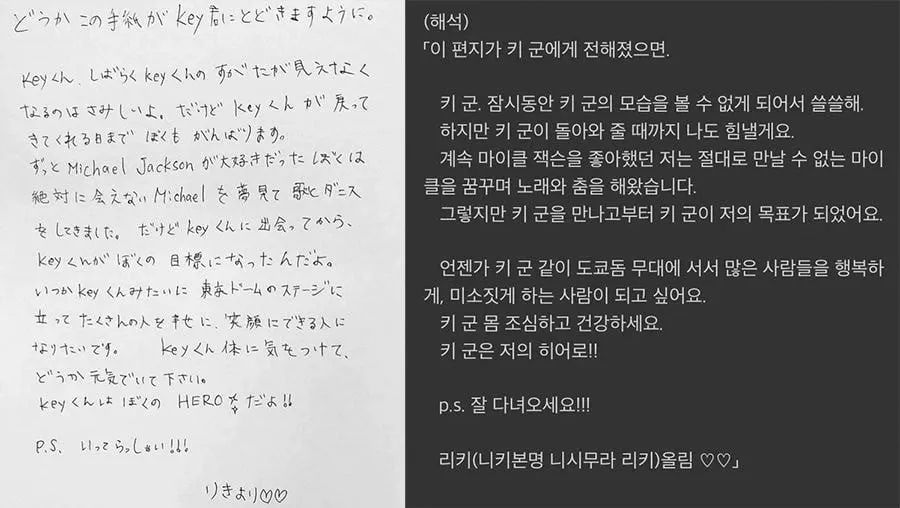 どうか この手紙が Key君にとどきますように。
Keyくん、しばらく Keyくんの すがたが見えなく
なるのは さみしいよ。だけど Keyくん が 戻って
きてくれる日まで ぼくも がんばります。
ずっと Michael Jackson が大好きだった ぼくは
絶対に会えない Michael を 夢見て 歌とダンス
をしてきました。だけど Keyくんに出会ってから、
Keyくんが ぼくの 目標になったんだよ。
いつか Keyくんみたいに 東京ドームのステージに
立って たくさんの人を 幸せに、笑顔にできる人に
なりたいです。 Keyくん 体に気をつけて、
どうか 元気でいて下さい。
Keyくんは ぼくの HERO だよ!!
P.S. いってらっしゃい!!!
りきより♡♡
(해석)
「이 편지가 키 군에게 전해졌으면.
키 군. 잠시동안 키 군의 모습을 볼 수 없게 되어서 쓸쓸해.
하지만 키 군이 돌아와 줄 때까지 나도 힘낼게요.
계속 마이클 잭슨을 좋아했던 저는 절대로 만날 수 없는 마이
클을 꿈꾸며 노래와 춤을 해왔습니다.
그렇지만 키 군을 만나고부터 키 군이 저의 목표가 되었어요.
언젠가 키 군 같이 도쿄돔 무대에 서서 많은 사람들을 행복하
게, 미소짓게 하는 사람이 되고 싶어요.
키 군 몸 조심하고 건강하세요.
키 군은 저의 히어로!!
p.s. 잘 다녀오세요!!!
리키(니키본명 니시무라 리키)올림 ♡♡」